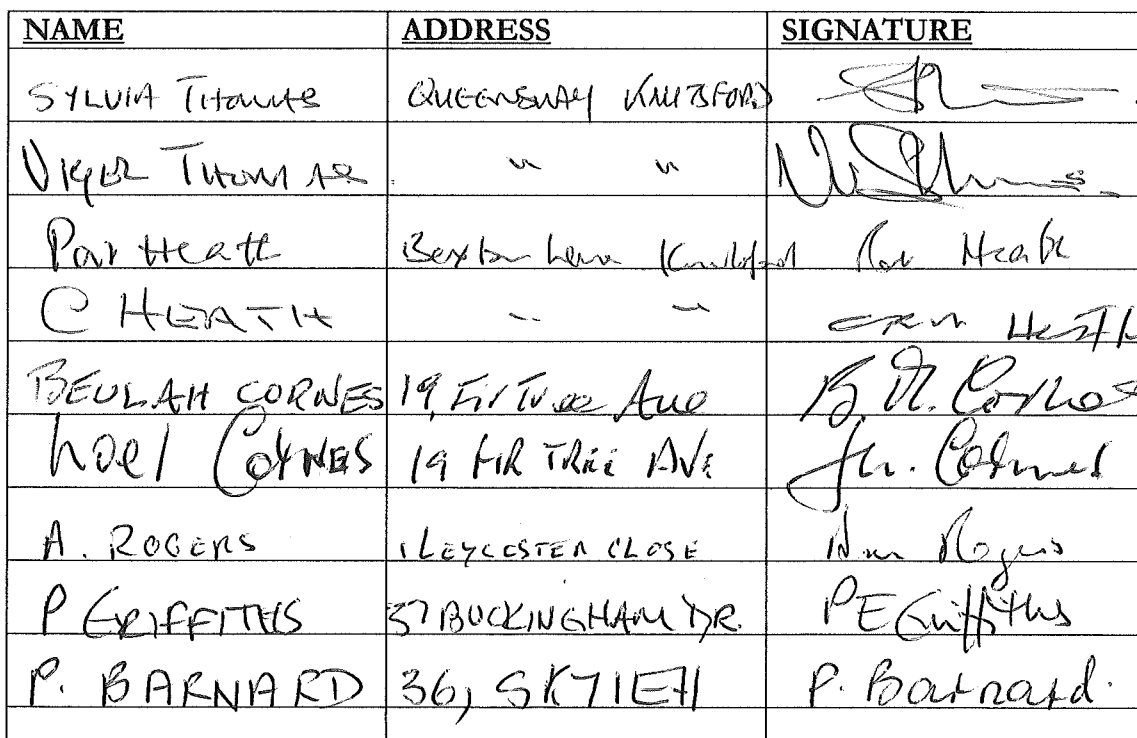 NAME ADDRESS SIGNATURE
SYLVIA THOMAS QUEENSWAY KNUTSFORD
THOMAS " "
Heath Bexton Lane Knutsford Heath
C HEATH " " HEATH
BEULAH CORNES 19, Fir Tree Ave B. M. Cornes
Noel CORNES 19 FIR TREE AVE Cornes
A. ROGERS 1 LEYCESTER CLOSE Ann Rogers
P GRIFFITHS 37 BUCKINGHAM DR. P E Griffiths
P. BARNARD 36, SK7 1EH P. Barnard.